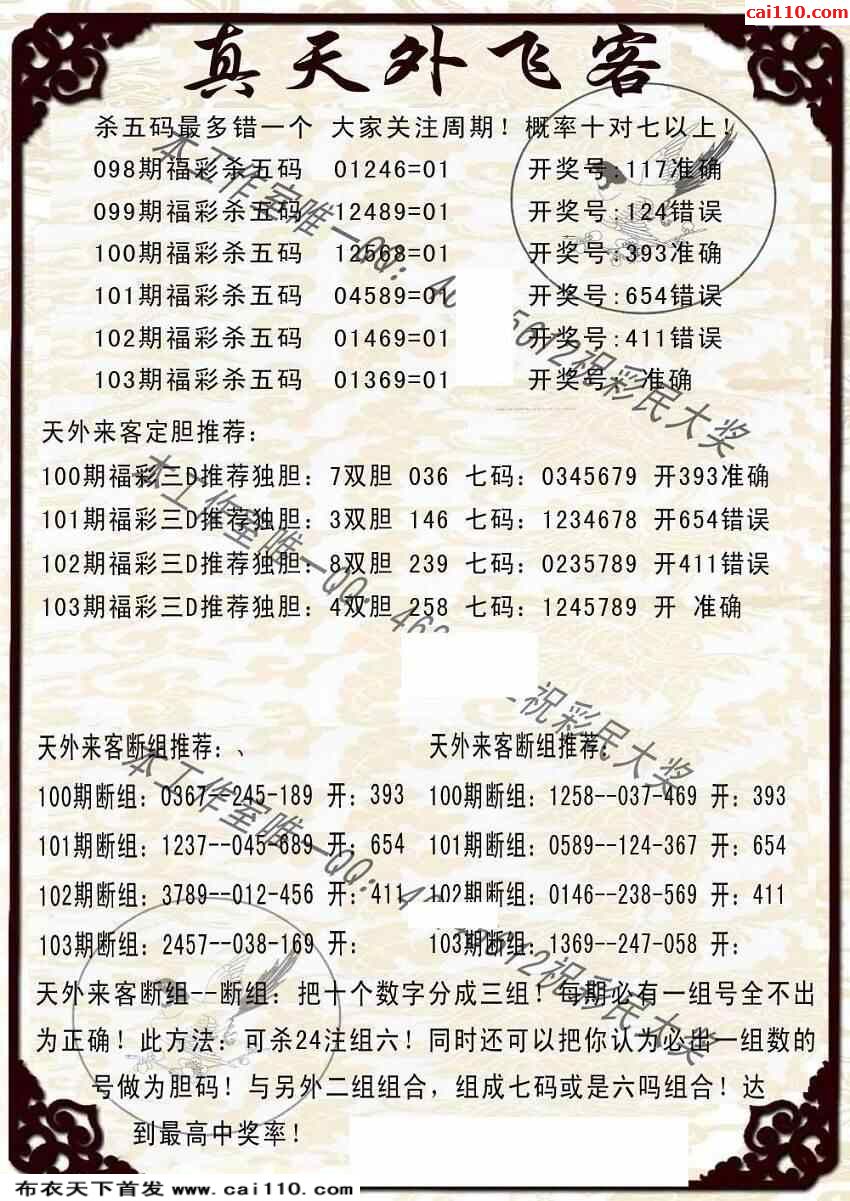 cai110.com
真天外飞客
杀五码最多错一个 大家关注周期！概率十对七以上！
098期福彩杀五码 01246=01 开奖号:117准确
099期福彩杀五码 12489=01 开奖号:124错误
100期福彩杀五码 12568=01 开奖号:393准确
101期福彩杀五码 04589=01 开奖号:654错误
102期福彩杀五码 01469=01 开奖号:411错误
103期福彩杀五码 01369=01 开奖号: 准确
天外来客定胆推荐：
100期福彩三D推荐独胆：7双胆 036 七码：0345679 开393准确
101期福彩三D推荐独胆：3双胆 146 七码：1234678 开654错误
102期福彩三D推荐独胆：8双胆 239 七码：0235789 开411错误
103期福彩三D推荐独胆：4双胆 258 七码：1245789 开 准确
天外来客断组推荐：、
100期断组：0367--245-189 开：393
101期断组：1237--045-689 开：654
102期断组：3789--012-456 开：411
103期断组：2457--038-169 开：
天外来客断组推荐：
100期断组：1258--037-469 开：393
101期断组：0589--124-367 开：654
102期断组：0146--238-569 开：411
103期断组：1369--247-058 开：
天外来客断组--断组：把十个数字分成三组！每期必有一组号全不出
为正确！此方法：可杀24注组六！同时还可以把你认为必出一组数的
号做为胆码！与另外二组组合，组成七码或是六吗组合！达
到最高中奖率！
本工作室唯一QQ：46 5612祝彩民大奖
本工作室唯一QQ：46 祝彩民大奖
本工作室唯一QQ：4 5612祝彩民大奖
布衣天下首发 www.cai110.com